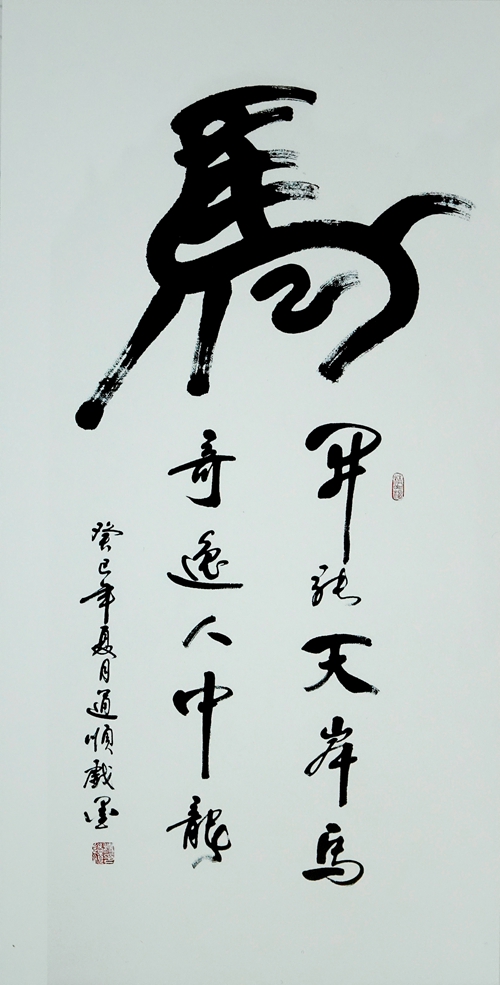 馬
開張天岸馬
奇逸人中龍
癸巳年夏月道順戲墨